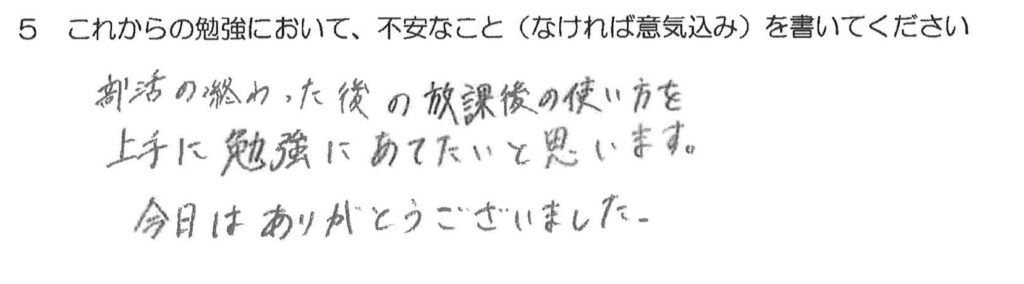 5 これからの勉強において、不安なこと（なければ意気込み）を書いてください
部活の終わった後の放課後の使い方を
上手に勉強にあてたいと思います。
今日はありがとうございました。